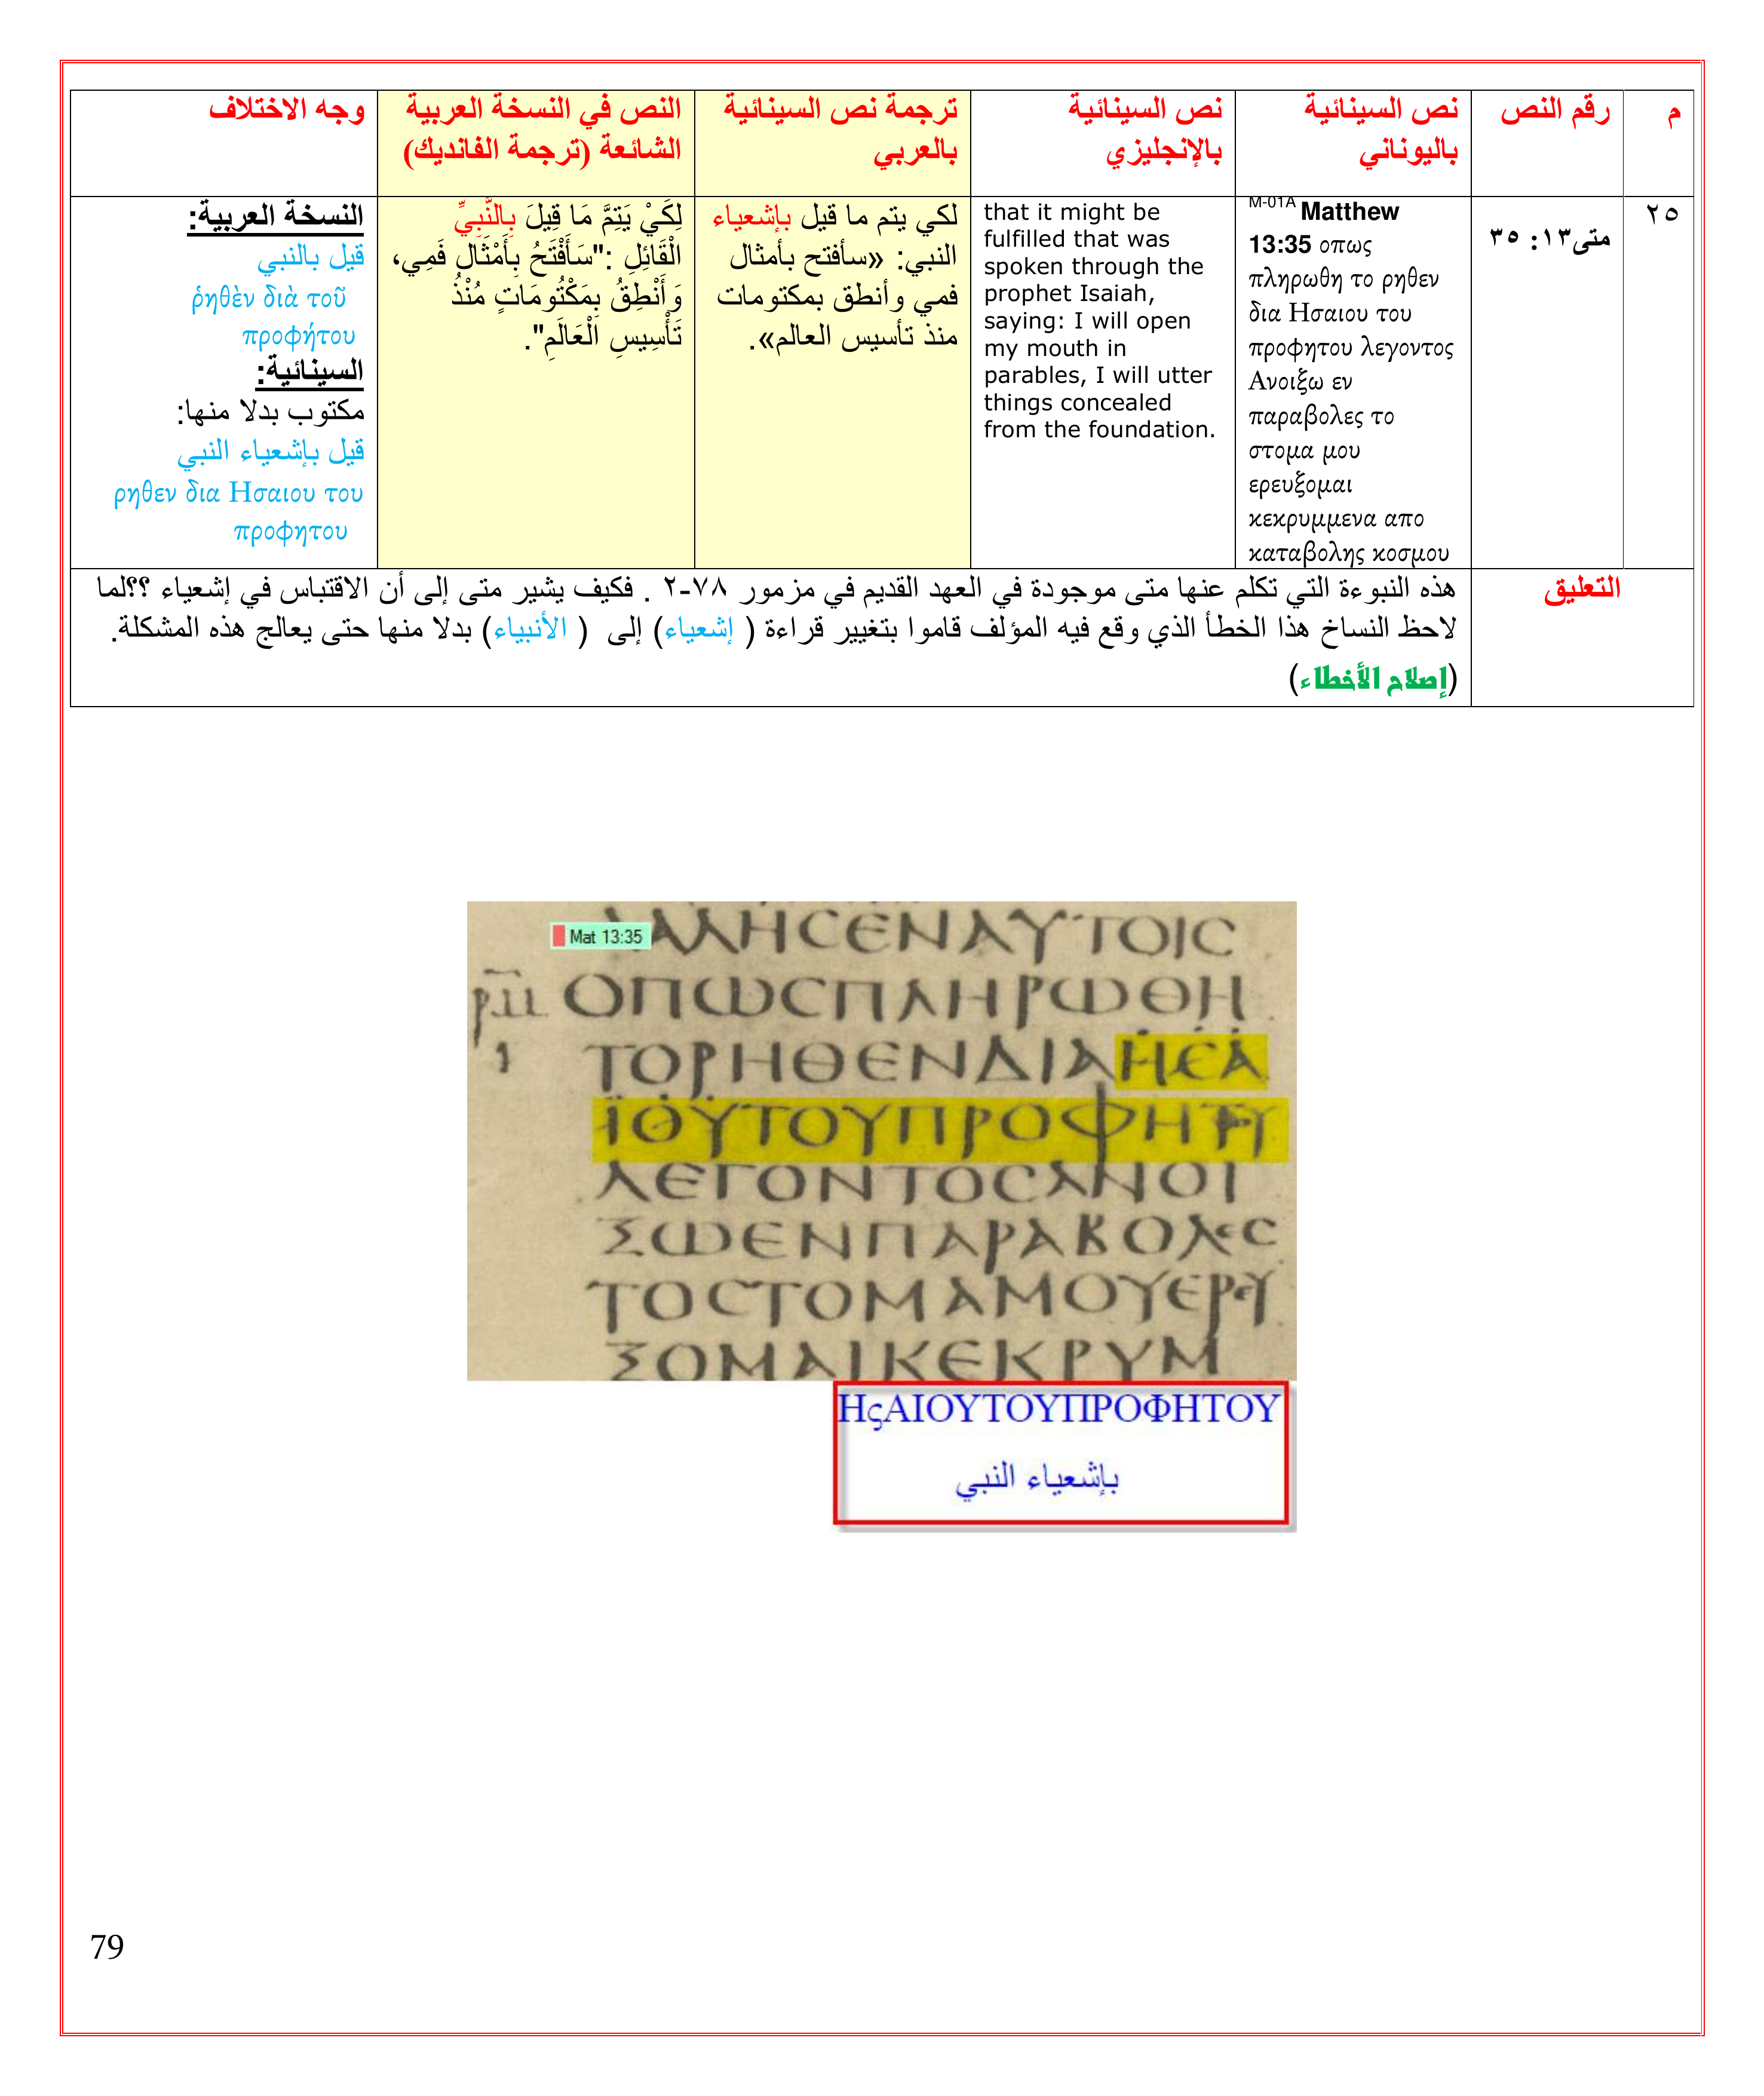 م
رقم النص
نص السينائية
باليوناني
نص السينائية
بالإنجليزي
ترجمة نص السينائية
بالعربي
النص في النسخة العربية
الشائعة (ترجمة الفانديك)
وجه الاختلاف
٢٥
متى١٣: ٣٥
M-01A Matthew
13:35 οπως
πληρωθη το ρηθεν
δια Ησαιου του
προφητου λεγοντος
Ανοιξω εν
παραβολες το
στομα μου
ερευξομαι
κεκρυμμενα απο
καταβολης κοσμου
that it might be
fulfilled that was
spoken through the
prophet Isaiah,
saying: I will open
my mouth in
parables, I will utter
things concealed
from the foundation.
لكي يتم ما قيل بإشعياء
النبي: «سأفتح بأمثال
فمي وأنطق بمكتومات
منذ تأسيس العالم».
لِكَيْ يَتِمَّ مَا قِيلَ بِالنَّبِيِّ
الْقَائِلِ :"سَأَفْتَحُ بِأَمْثَال فَمِي،
وَأَنْطِقُ بِمَكْتُومَاتٍ مُنْذُ
تَأْسِيسِ الْعَالَمِ".
النسخة العربية:
قيل بالنبي
ῥηθὲν διὰ τοῦ
προφήτου
السينائية:
مكتوب بدلا منها:
قيل بإشعياء النبي
ρηθεν δια Ησαιου του
προφητου
التعليق
هذه النبوءة التي تكلم عنها متى موجودة في العهد القديم في مزمور ٧٨-٢ . فكيف يشير متى إلى أن الاقتباس في إشعياء ؟؟لما
لاحظ النساخ هذا الخطأ الذي وقع فيه المؤلف قاموا بتغيير قراءة ( إشعياء) إلى ( الأنبياء) بدلا منها حتى يعالج هذه المشكلة.
(إصلاح الأخطاء)
Mat 13:35
ΛΑΛΗϹΕΝΑΥΤΟΙϹ
ΟΠΩϹΠΛΗΡΩΘΗ
ΤΟΡΗΘΕΝΔΙΑΗϹΑ
ΪΟΥΤΟΥΠΡΟΦΗΤΟΥ
ΛΕΓΟΝΤΟϹΑΝΟΙ
ΞΩΕΝΠΑΡΑΒΟΛΕϹ
ΤΟϹΤΟΜΑΜΟΥΕΡΕΥ
ΞΟΜΑΙΚΕΚΡΥΜ
ΗςΑΙΟΥΤΟΥΠΡΟΦΗΤΟΥ
بإشعياء النبي
79